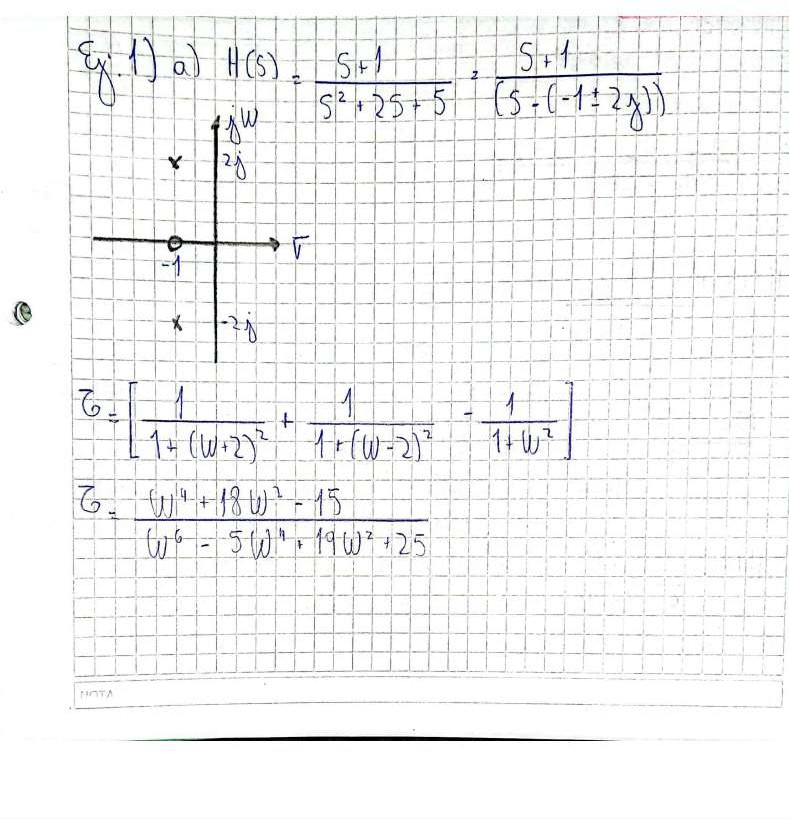 Ej. 1) a) H(S) = S+1 / S² + 2S + 5 = S+1 / (S - (-1 ± 2j))
jW
2j
σ
-1
-2j
τ = [ 1 / 1+(W+2)² + 1 / 1+(W-2)² - 1 / 1+W² ]
τ = W⁴ + 18W² - 15 / W⁶ - 5W⁴ + 19W² + 25
NOTA